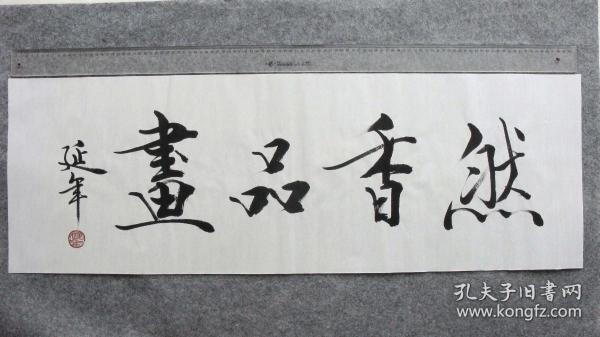 然香品畫
延年
孔夫子旧書网
www.kongfz.com